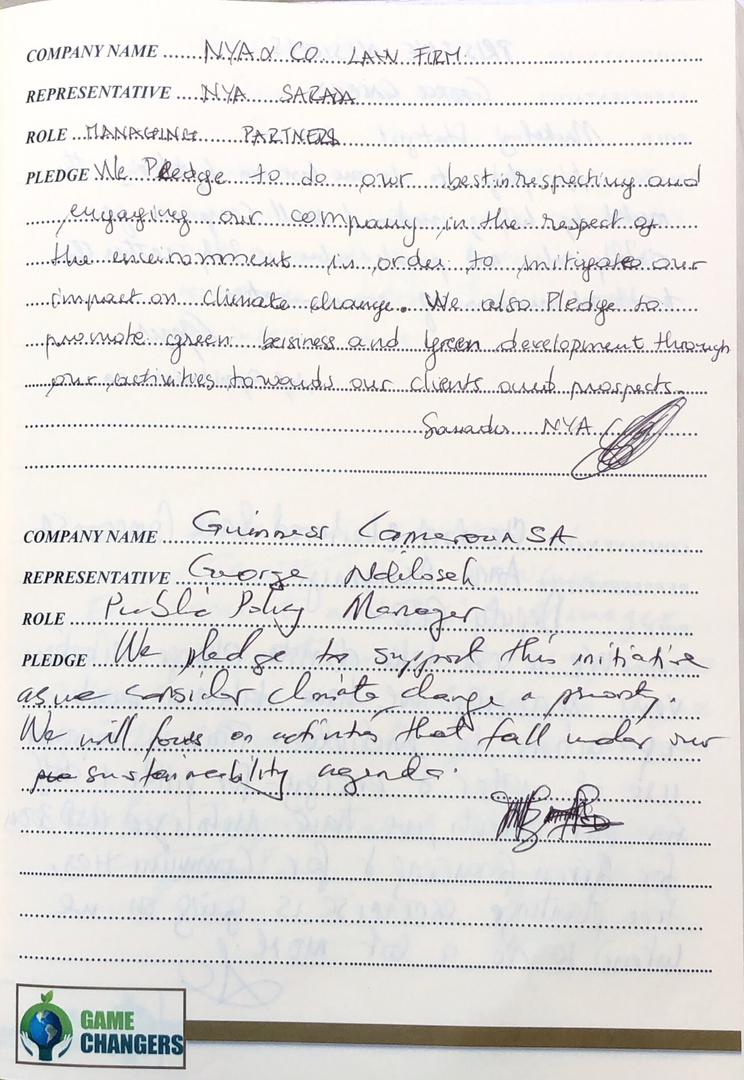 COMPANY NAME NYA & CO LAW FIRM
REPRESENTATIVE NYA SARADA
ROLE MANAGING PARTNERS
PLEDGE We Pledge to do our best in respecting and
engaging our company in the respect of
the environnment in order to mitigate our
impact on climate change. We also Pledge to
promote green business and green development through
our activities towards our clients and prospects.
NYA
COMPANY NAME Guinness Cameroun SA
REPRESENTATIVE George
ROLE Public Policy Manager
PLEDGE We pledge to support this initiative
as we consider climate change a priority.
We will focus on activities that fall under our
sustaineability agenda.
GAME
CHANGERS